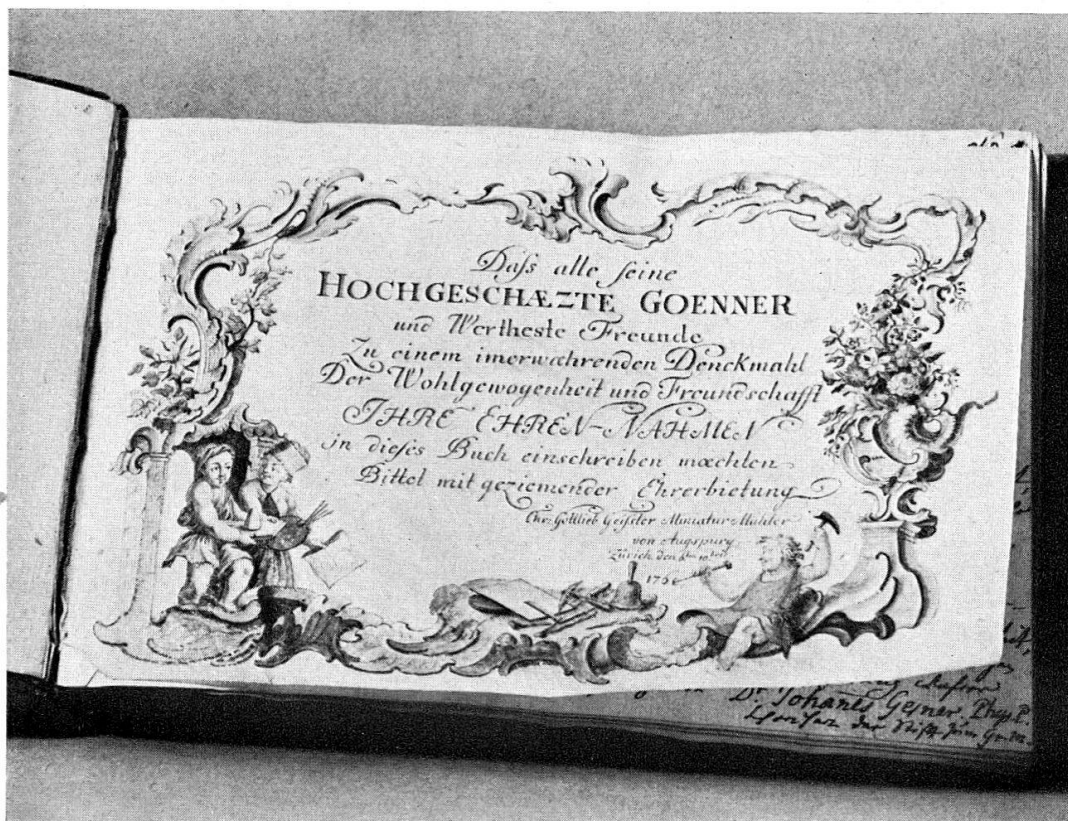 Daſs alle ſeine
HOCHGESCHÆZTE GOENNER
und Wertheste Freunde
Zu einem imerwæhrenden Denckmahl
Der Wohlgewogenheit und Freundschafft
IHRE EHREN-NAHMEN
in dieſes Buch einschreiben mœchten
Bittet mit geziemender Ehrerbietung
Chr: Gottlieb Geiſsler Miniatur-Mahler
von Augspurg
Zürich den
176
Dr. Johanes Gesner, Phys. P.